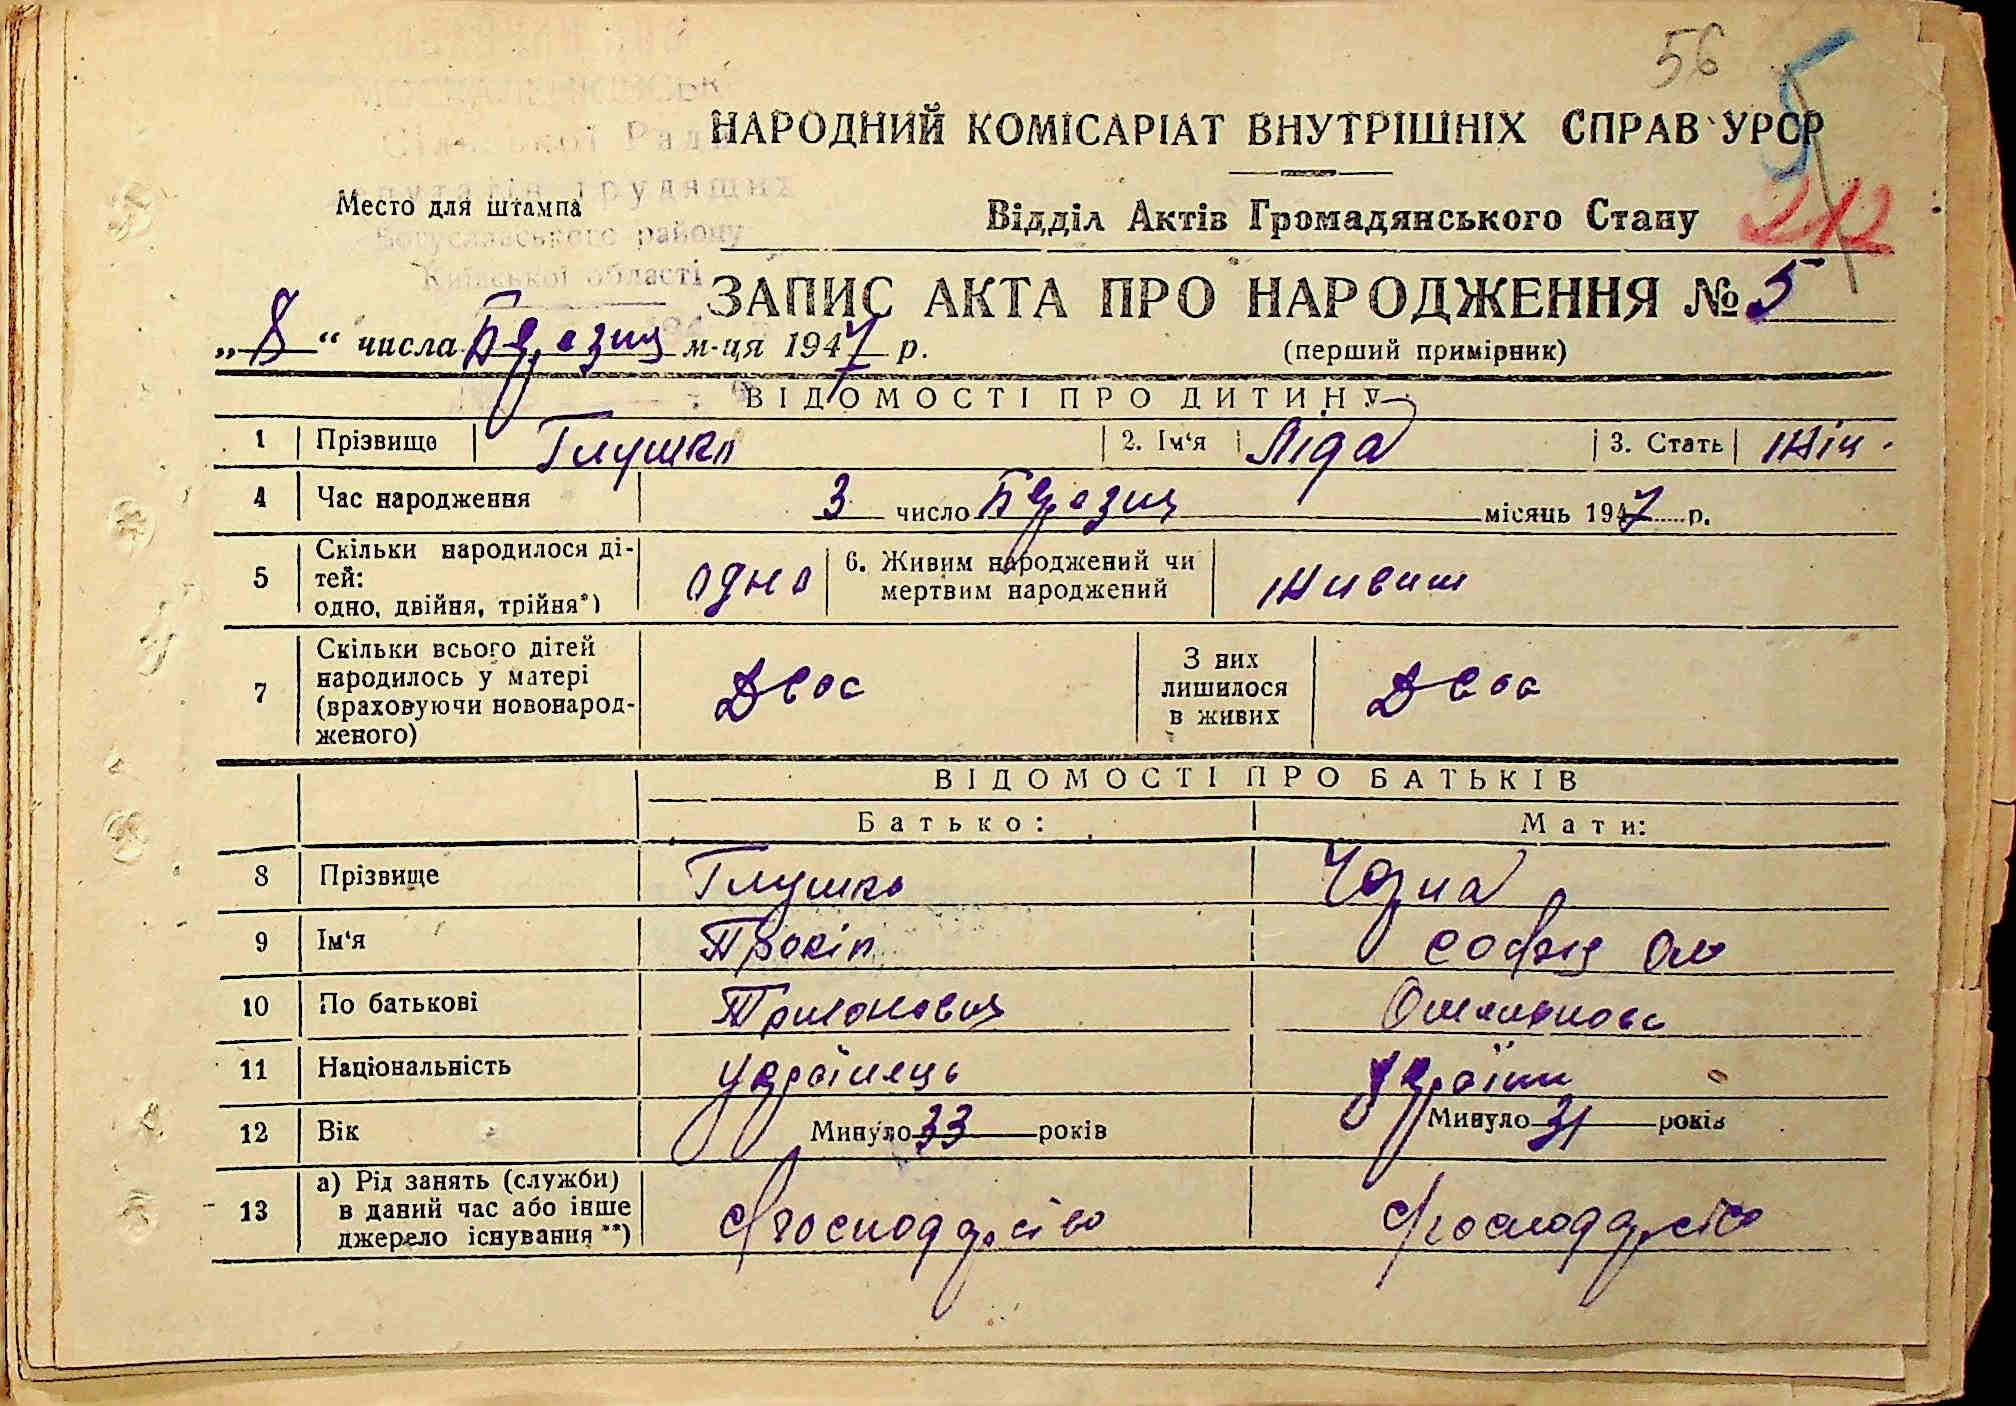 56
5
НАРОДНИЙ КОМІСАРІАТ ВНУТРІШНІХ СПРАВ УРСР
Сільської Ради
депутатів трудящих
Место для штампа
Відділ Актів Громадянського Стану
212
Богуславського району
Київської області
ЗАПИС АКТА ПРО НАРОДЖЕННЯ № 5
„8“ числа Березня м-ця 1947 р.
(перший примірник)
ВІДОМОСТІ ПРО ДИТИНУ
1 Прізвище Глушко 2. Ім‘я Ліда 3. Стать жін.
4 Час народження 3 число Березня місяць 1947 р.
5 Скільки народилося ді-
тей:
одно, двійня, трійня*) одно 6. Живим народжений чи
мертвим народжений живим
7 Скільки всього дітей
народилось у матері
(враховуючи новонарод-
женого) Двоє З них
лишилося
в живих Двоє
ВІДОМОСТІ ПРО БАТЬКІВ
Батько: Мати:
8 Прізвище Глушко Чорна
9 Ім‘я Прокіп Софія
10 По батькові
11 Національність українець україн
12 Вік Минуло 33 років Минуло 31 років
13 а) Рід занять (служби)
в даний час або інше
джерело існування **) с/господарство с/господарство